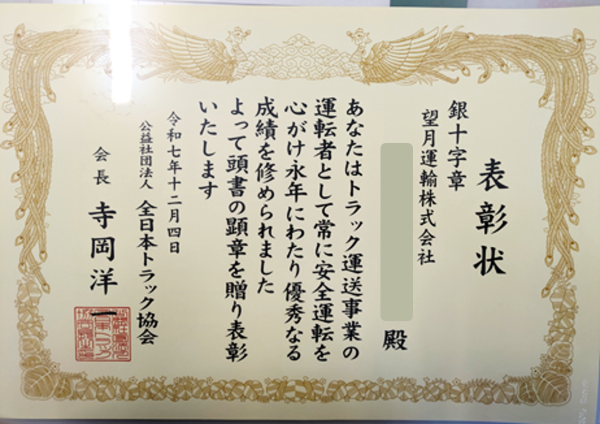 表彰状
銀十字章
望月運輸株式会社
殿
あなたはトラック運送事業の
運転者として常に安全運転を
心がけ永年にわたり優秀なる
成績を修められました
よって頭書の顕章を贈り表彰
いたします
令和七年十二月四日
公益社団法人 全日本トラック協会
会長 寺岡洋一